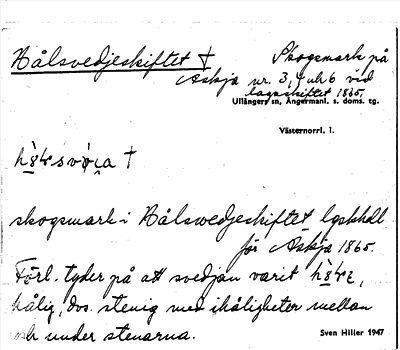 Hålsvedjeskiftet † Skogsmark på
Askja nr. 3, 4 och 6 vid
lagaskiftet 1865.
Ullångers sn, Ångermanl. s. doms. tg.
Västernorrl. l.
skogsmark i Hålsvedjeskiftet lgskhdl
för Askja 1865.
Förl. tyder på att svedjan varit
hålig, dvs. stenig med ihåligheter mellan
och under stenarna.
Sven Hiller 1947